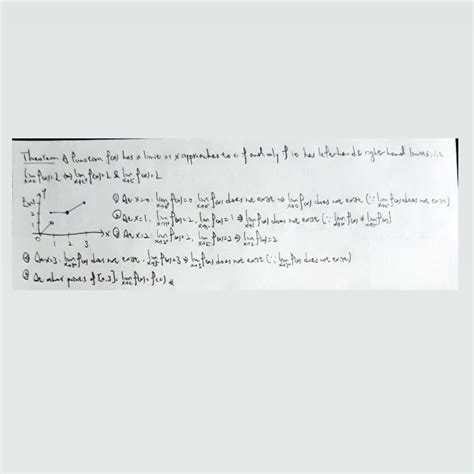 Theorem A function f(x) has a limit as x approaches to c if and only if it has lefthand & right hand limits, i.e
lim x→c f(x)=L ⇔ lim x→c⁺ f(x)=L & lim x→c⁻ f(x)=L
Ex
y
3
2
1
0 1 2 3 x
① At x=0: lim x→0⁺ f(x)=0, lim x→0⁻ f(x) does not exist ⇒ lim x→0 f(x) does not exist (∵ lim x→0⁻ f(x) does not exist)
② At x=1, lim x→1⁺ f(x)=2, lim x→1⁻ f(x)=1 ⇒ lim x→1 f(x) does not exist (∵ lim x→1⁺ f(x) ≠ lim x→1⁻ f(x))
③ At x=2: lim x→2⁺ f(x)=2, lim x→2⁻ f(x)=2 ⇒ lim x→2 f(x)=2
④ At x=3, lim x→3⁺ f(x) does not exist, lim x→3⁻ f(x)=3 ⇒ lim x→3 f(x) does not exist (∵ lim x→3⁺ f(x) does not exist)
⑤ At other points of [0,3], lim x→c f(x)=f(c)